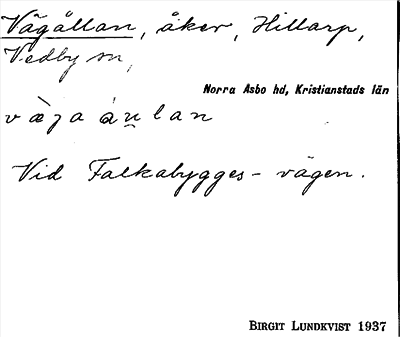 Vägållan, åker, Hillarp,
Vedby sn,
Norra Åsbo hd, Kristianstads län
Vid Falkabygges-vägen.
BIRGIT LUNDKVIST 1937